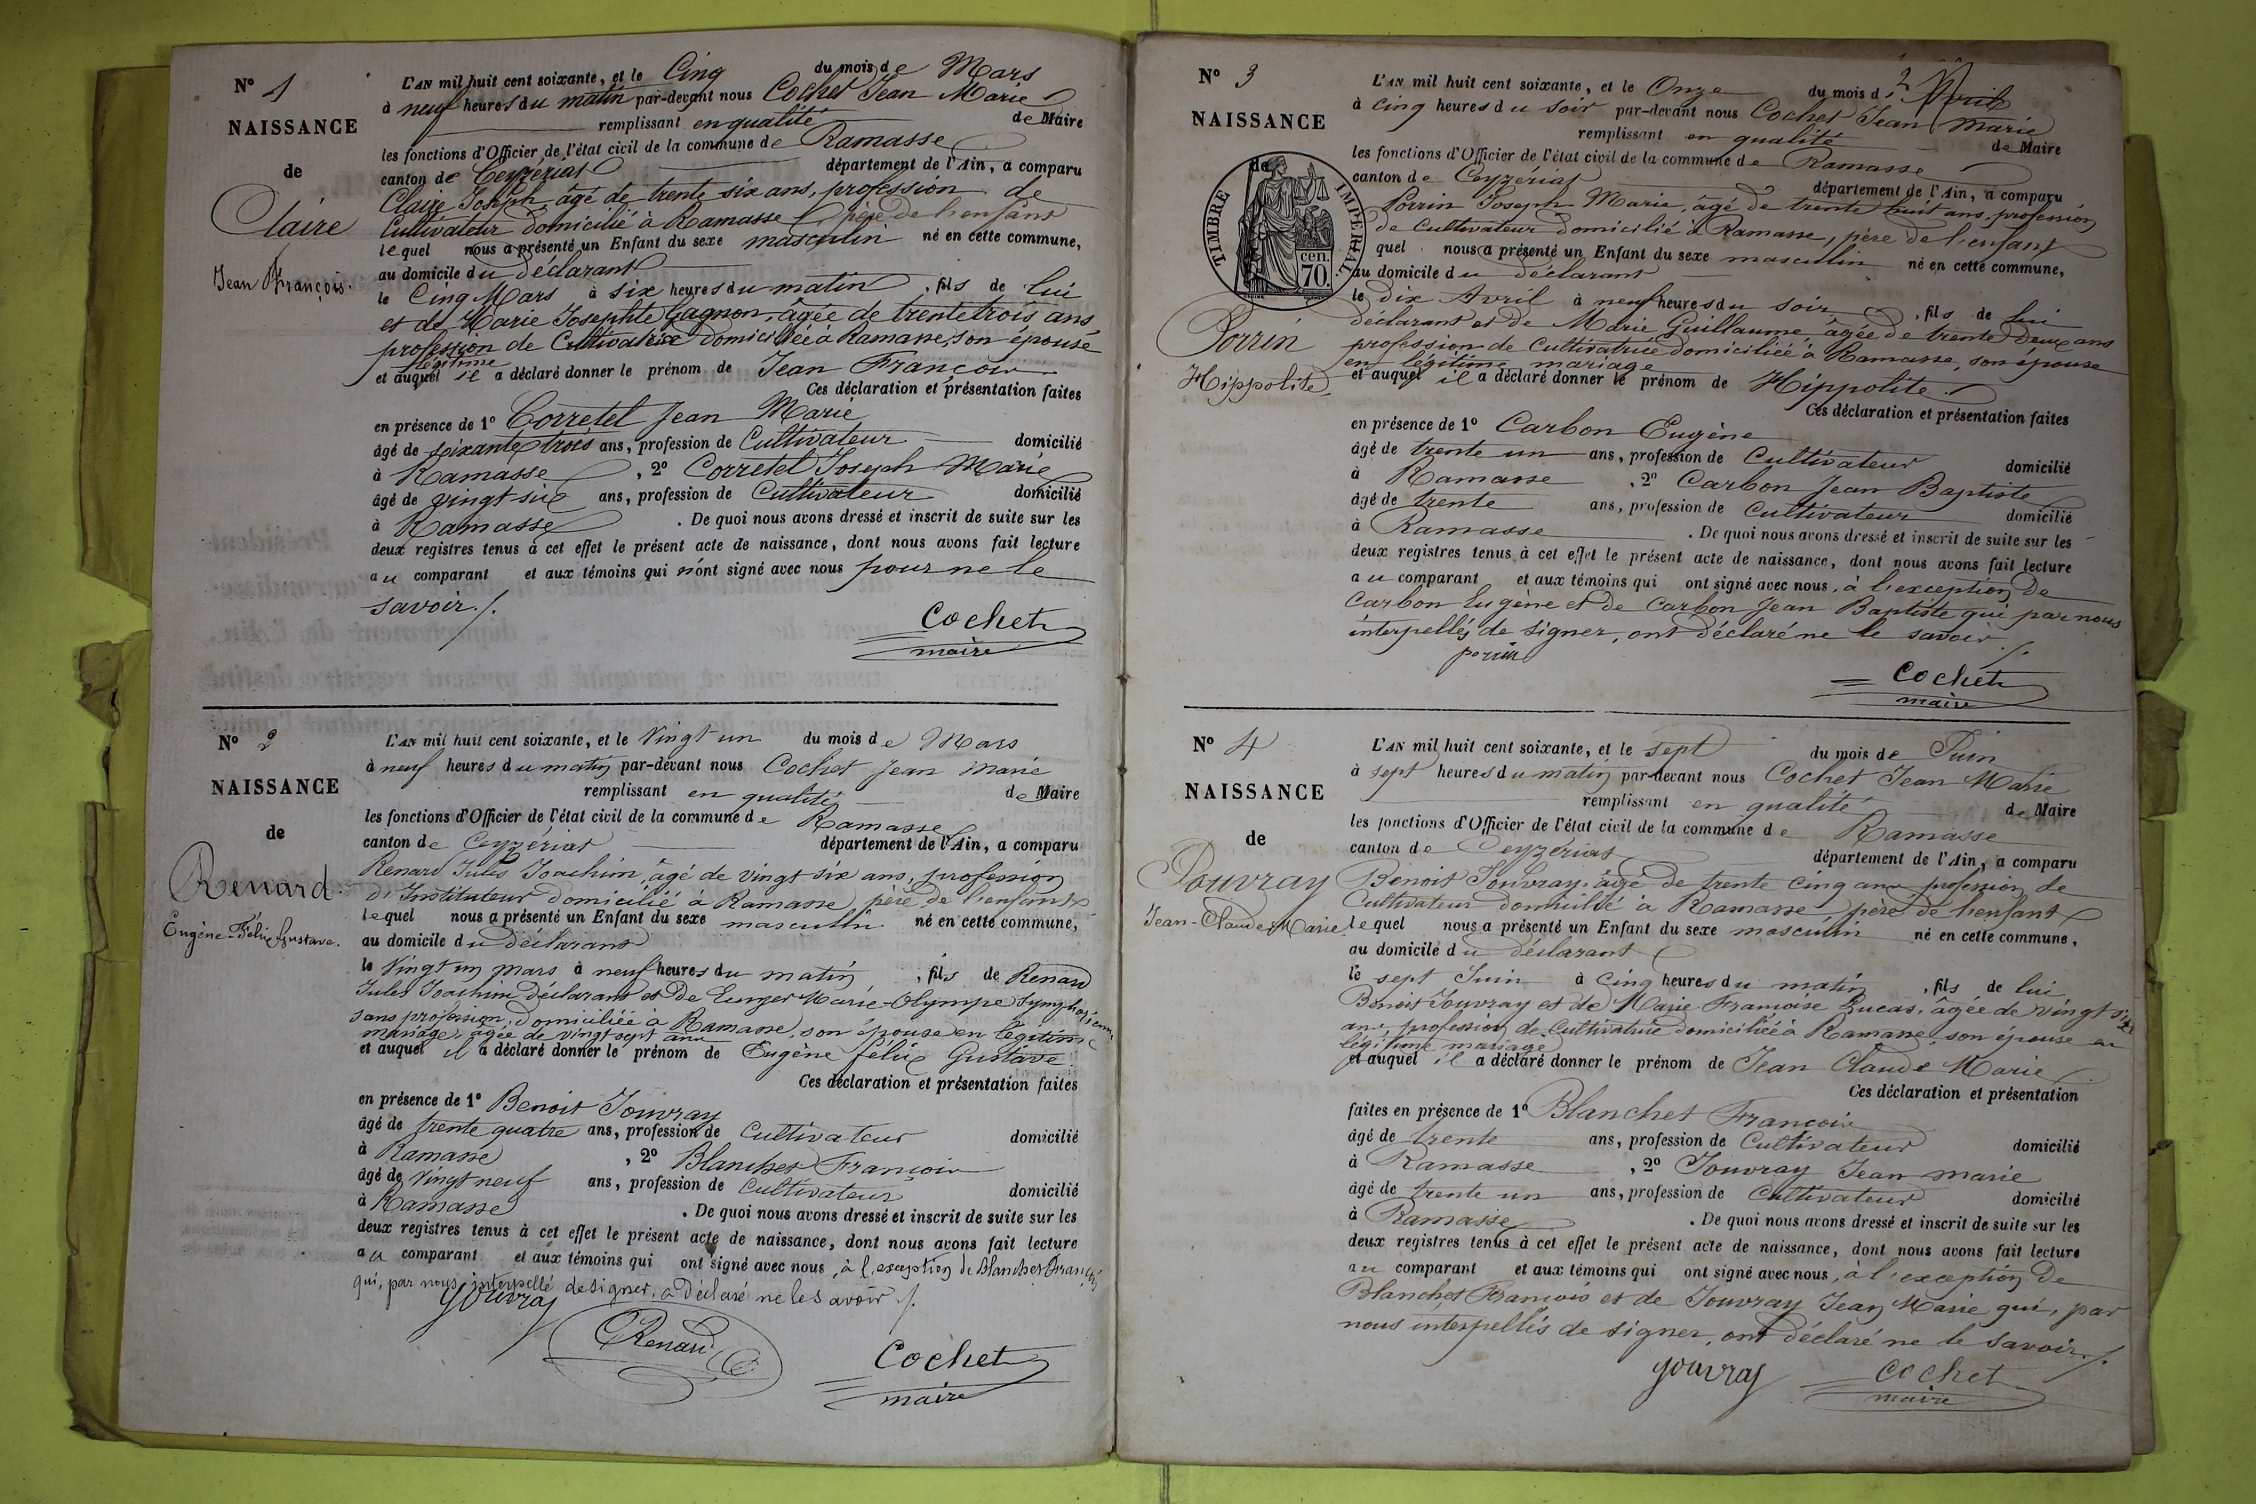 N° 1
NAISSANCE
de
Claire
Jean François.
L'AN mil huit cent soixante, et le Cinq du mois de Mars
à neuf heures du matin par-devant nous Cochet Jean Marie
remplissant en qualité de Maire
les fonctions d'Officier de l'état civil de la commune de Ramasse
canton de Ceyzériat département de l'Ain, a comparu
Claire Joseph, âgé de trente six ans, profession de
Cultivateur domicilié à Ramasse père de l'enfant
lequel nous a présenté un Enfant du sexe masculin né en cette commune,
au domicile du déclarant
le Cinq Mars à six heures du matin, fils de lui
et de Marie Josephte Gagnon, âgée de trente trois ans
profession de Cultivatrice domiciliée à Ramasse, son épouse
légitime
et auquel il a déclaré donner le prénom de Jean François
Ces déclaration et présentation faites
en présence de 1° Corretel Jean Marie
âgé de soixante trois ans, profession de Cultivateur domicilié
à Ramasse, 2° Corretel Joseph Marie
âgé de vingt six ans, profession de Cultivateur domicilié
à Ramasse. De quoi nous avons dressé et inscrit de suite sur les
deux registres tenus à cet effet le présent acte de naissance, dont nous avons fait lecture
au comparant et aux témoins qui n'ont signé avec nous pour ne le
savoir./.
Cochet
maire
N° 2
NAISSANCE
de
Renard.
Eugène-Félix Gustave.
L'AN mil huit cent soixante, et le Vingt un du mois de Mars
à neuf heures du matin par-devant nous Cochet Jean Marie
remplissant en qualité de Maire
les fonctions d'Officier de l'état civil de la commune de Ramasse
canton de Ceyzériat département de l'Ain, a comparu
Renard Jules Joachim, âgé de vingt six ans, profession
d'Instituteur domicilié à Ramasse, père de l'enfant
lequel nous a présenté un Enfant du sexe masculin né en cette commune,
au domicile du déclarant
le Vingt un mars à neuf heures du matin, fils de Renard
Jules Joachim déclarant et de Marie-Olympe Symphorienne
sans profession, domiciliée à Ramasse, son épouse en légitime
mariage, âgée de vingt sept ans
et auquel il a déclaré donner le prénom de Eugène félix Gustave.
Ces déclaration et présentation faites
en présence de 1° Benoit Jouvray
âgé de trente quatre ans, profession de Cultivateur domicilié
à Ramasse, 2° Blanchet François
âgé de Vingt neuf ans, profession de Cultivateur domicilié
à Ramasse. De quoi nous avons dressé et inscrit de suite sur les
deux registres tenus à cet effet le présent acte de naissance, dont nous avons fait lecture
au comparant et aux témoins qui ont signé avec nous, à l'exception de Blanchet François
qui, par nous interpellé de signer, a déclaré ne le savoir./.
Jouvray
Renard
Cochet
maire
N° 3
NAISSANCE
de
TIMBRE IMPERIAL
70 cen.
Porrin
Hippolite.
L'AN mil huit cent soixante, et le Onze du mois d'Avril
à Cinq heures du soir par-devant nous Cochet Jean Marie
remplissant en qualité de Maire
les fonctions d'Officier de l'état civil de la commune de Ramasse
canton de Ceyzériat département de l'Ain, a comparu
Porrin Joseph Marie, âgé de trente huit ans, profession
de Cultivateur domicilié à Ramasse, père de l'enfant
quel nous a présenté un Enfant du sexe masculin né en cette commune,
au domicile du déclarant
le dix Avril à neuf heures du soir, fils de lui
déclarant et de Marie Guillaume, âgée de trente deux ans
profession de Cultivatrice domiciliée à Ramasse, son épouse
en légitime mariage
et auquel il a déclaré donner le prénom de Hippolite
Ces déclaration et présentation faites
en présence de 1° Carbon Eugène
âgé de trente un ans, profession de Cultivateur domicilié
à Ramasse, 2° Carbon Jean Baptiste
âgé de trente ans, profession de Cultivateur domicilié
à Ramasse. De quoi nous avons dressé et inscrit de suite sur les
deux registres tenus à cet effet le présent acte de naissance, dont nous avons fait lecture
au comparant et aux témoins qui ont signé avec nous, à l'exception de
Carbon Eugène et de Carbon Jean Baptiste qui par nous
interpellés de signer, ont déclaré ne le savoir./.
porrin
Cochet
maire
N° 4
NAISSANCE
de
Jouvray
Jean-Claude Marie.
L'AN mil huit cent soixante, et le sept du mois de Juin
à sept heures du matin par-devant nous Cochet Jean Marie
remplissant en qualité de Maire
les fonctions d'Officier de l'état civil de la commune de Ramasse
canton de Ceyzériat département de l'Ain, a comparu
Benoit Jouvray, âgé de trente cinq ans profession de
Cultivateur domicilié à Ramasse père de l'enfant
lequel nous a présenté un Enfant du sexe masculin né en cette commune,
au domicile du déclarant
le sept Juin à cinq heures du matin, fils de lui
Benoit Jouvray et de Marie Françoise Lucas, âgée de vingt
ans, profession de Cultivatrice domiciliée à Ramasse, son épouse en
légitime mariage
et auquel il a déclaré donner le prénom de Jean Claude Marie
Ces déclaration et présentation
faites en présence de 1° Blanchet François
âgé de trente ans, profession de Cultivateur domicilié
à Ramasse, 2° Jouvray Jean marie
âgé de trente un ans, profession de Cultivateur domicilié
à Ramasse. De quoi nous avons dressé et inscrit de suite sur les
deux registres tenus à cet effet le présent acte de naissance, dont nous avons fait lecture
au comparant et aux témoins qui ont signé avec nous, à l'exception de
Blanchet François et de Jouvray Jean Marie qui, par
nous interpellés de signer, ont déclaré ne le savoir./.
Jouvray
Cochet
maire